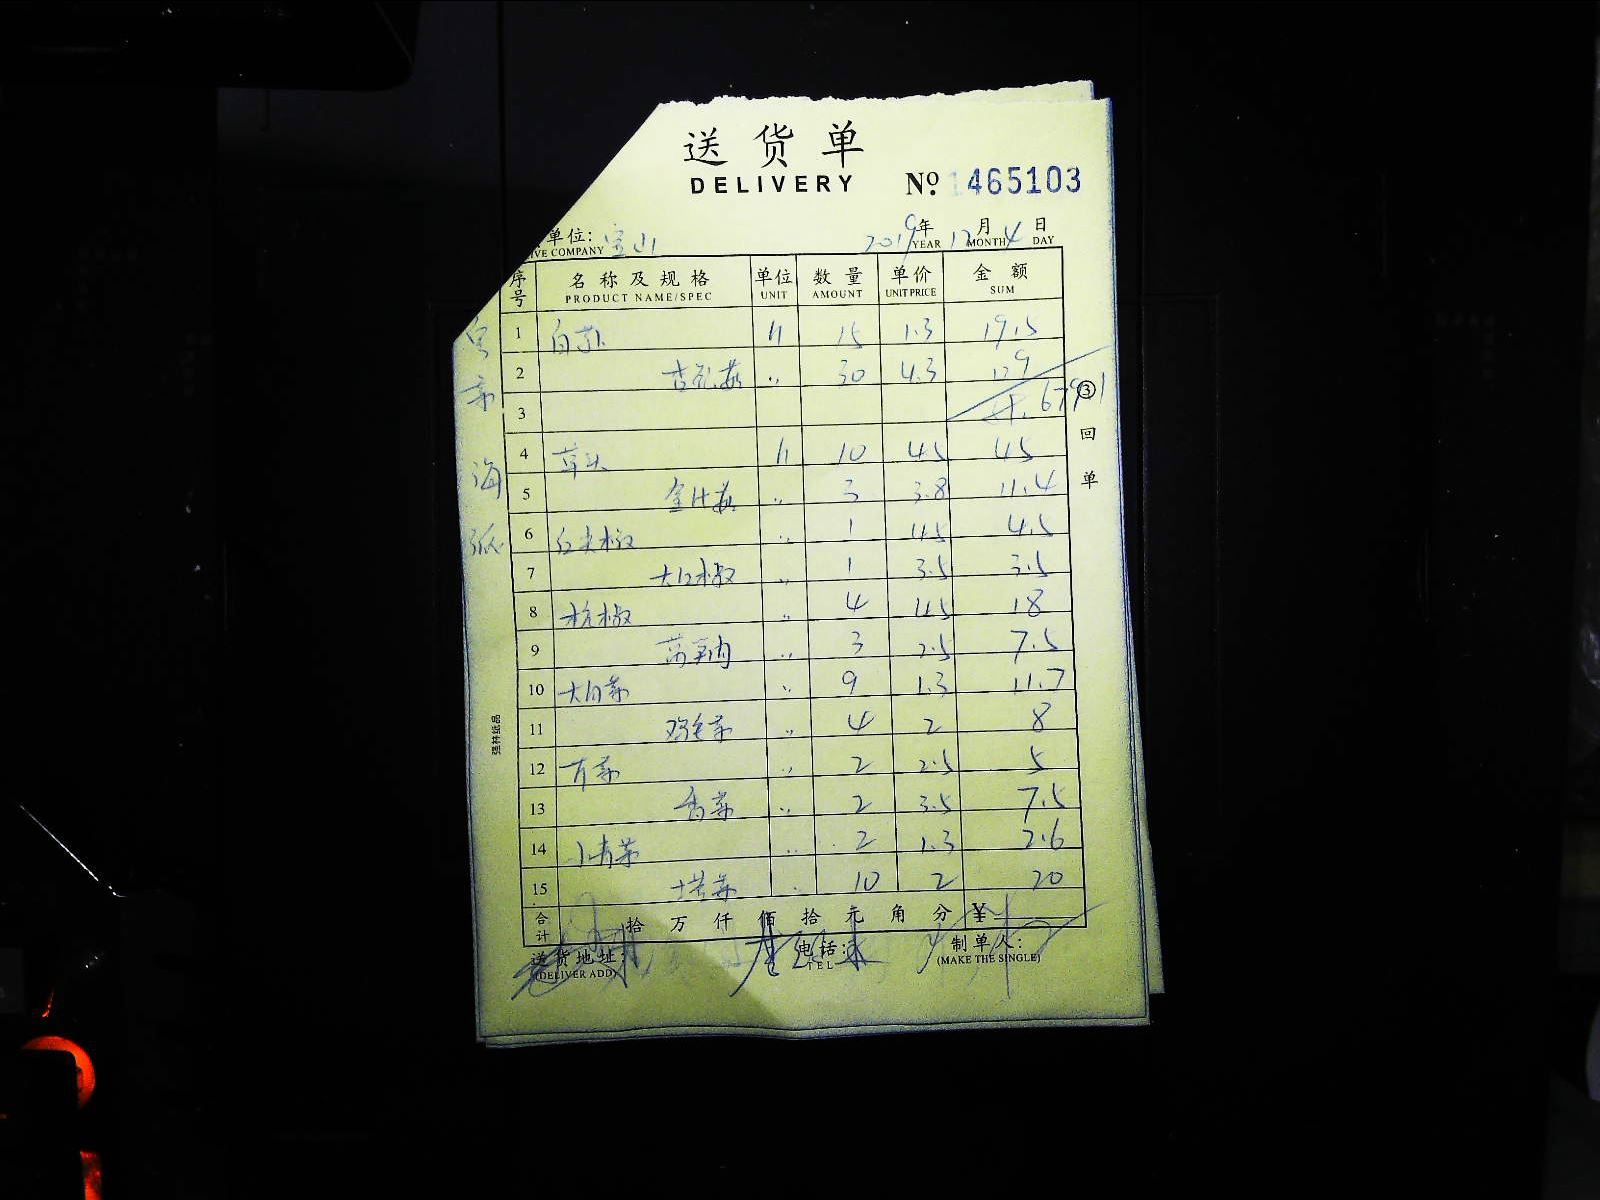 送货单
DELIVERY
№ 1465103
单位: 宝山 2019年 12月 4日
IVE COMPANY YEAR MONTH DAY
序号 名称及规格 单位 数量 单价 金额
PRODUCT NAME/SPEC UNIT AMOUNT UNIT PRICE SUM
1 15 1.3 19.5
2 杏鲍菇 〃 30 4.3 129
3
4 草头 10 4.5 45
5 金针菇 〃 3 3.8 11.4
6 红尖椒 〃 1 4.5 4.5
7 大红椒 〃 1 3.5 3.5
8 杭椒 〃 4 4.5 18
9 〃 3 2.5 7.5
10 大白菜 〃 9 1.3 11.7
11 鸡毛菜 〃 4 2 8
12 〃 2 2.5 5
13 香菜 〃 2 3.5 7.5
14 小青菜 〃 2 1.3 2.6
15 塔菜 〃 10 2 20
合计 拾 万 仟 佰 拾 元 角 分 ¥
送货地址: 电话: 制单人:
(DELIVER ADD) TEL (MAKE THE SINGLE)
③回单
强林纸品